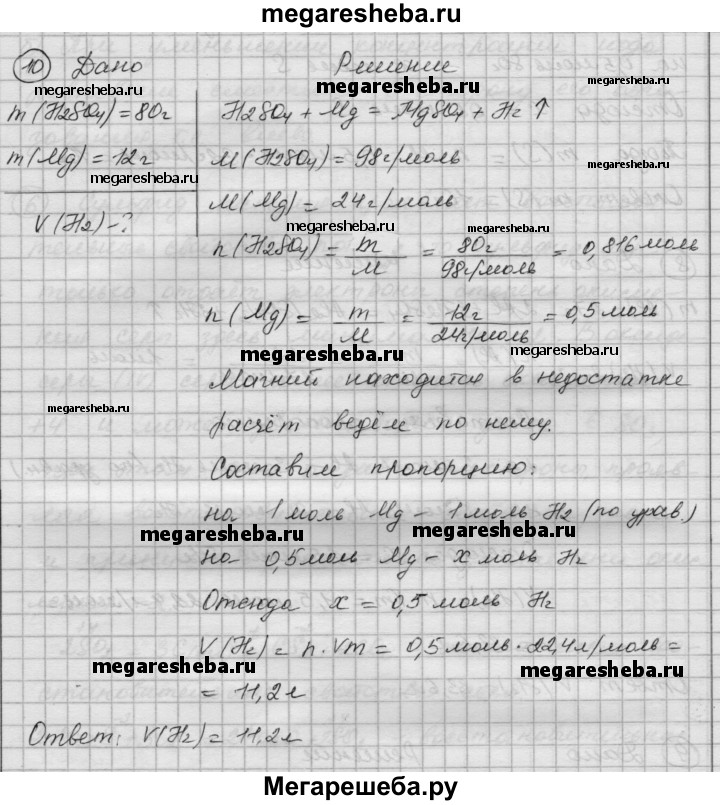 megaresheba.ru
10 Дано Решение
megaresheba.ru megaresheba.ru megaresheba.ru
m(H2SO4)=80г H2SO4 + Mg = MgSO4 + H2 ↑
m(Mg)=12г M(H2SO4)=98г/моль
megaresheba.ru megaresheba.ru
M(Mg)=24г/моль
V(H2)-? megaresheba.ru
n(H2SO4)= m/M = 80г/98г/моль = 0,816 моль
n(Mg)= m/M = 12г/24г/моль =0,5 моль
megaresheba.ru megaresheba.ru
Магний находится в недостатке
megaresheba.ru
расчёт ведём по нему.
Составим пропорцию:
на 1 моль Mg - 1 моль H2 (по урав.)
megaresheba.ru megaresheba.ru
на 0,5 моль Mg - x моль H2
Отсюда x = 0,5 моль H2
V(H2)= n·Vm = 0,5 моль·22,4л/моль =
megaresheba.ru megaresheba.ru
= 11,2л
Ответ: V(H2)=11,2л
Мегарешеба.ру